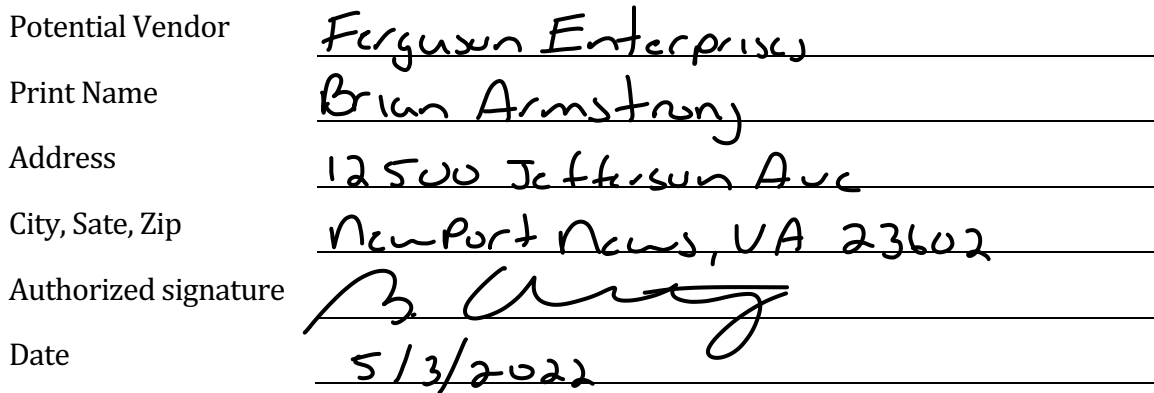 Potential Vendor Ferguson Enterprises
Print Name Brian Armstrong
Address 12500 Jefferson Ave
City, Sate, Zip Newport News, VA 23602
Authorized signature B.
Date 5/3/2022